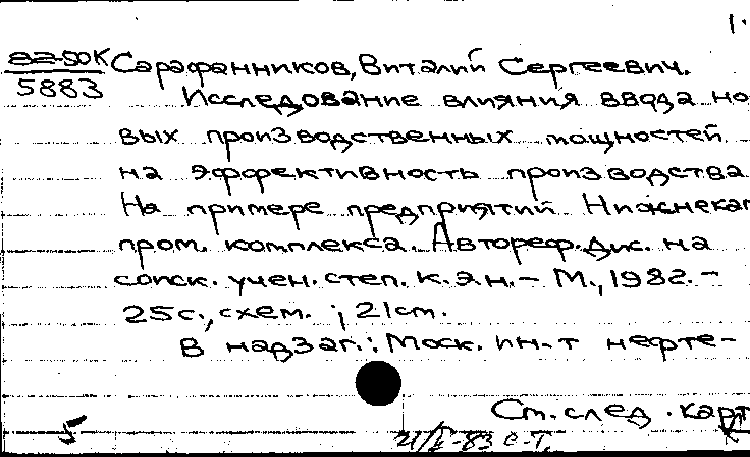 1.
82-50К Сарафанников, Виталий Сергеевич.
5883
Исследование влияния ввода но
вых производственных мощностей
на эффективность производства
На примере предприятий Нижнекам
пром. комплекса. Автореф. дис. на
соиск. учен. степ. к.э.н. – М., 1982. –
25с., схем. ; 21см.
В надзаг.: Моск. ин-т нефте-
Ст. след. карт
5